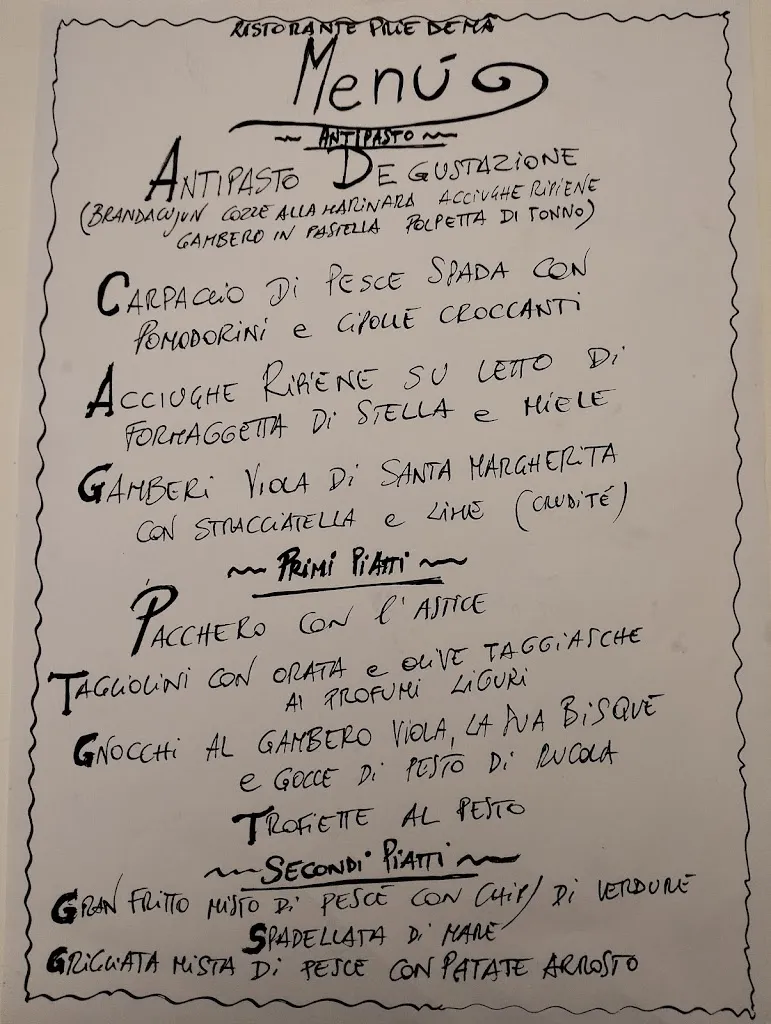 RISTORANTE PRIE DE MÂ
Menú
~ ANTIPASTO ~
ANTIPASTO DEGUSTAZIONE
(BRANDACUJUN COZZE ALLA MARINARA ACCIUGHE RIPIENE
GAMBERO IN PASTELLA POLPETTA DI TONNO)
CARPACCIO DI PESCE SPADA CON
POMODORINI e CIPOLLE CROCCANTI
ACCIUGHE RIPIENE SU LETTO DI
FORMAGGETTA DI STELLA e MIELE
GAMBERI VIOLA DI SANTA MARGHERITA
CON STRACCIATELLA e LIME (CRUDITÉ)
~ PRIMI PIATTI ~
PACCHERO CON l'ASTICE
TAGLIOLINI CON ORATA e OLIVE TAGGIASCHE
AI PROFUMI LIGURI
GNOCCHI AL GAMBERO VIOLA, LA SUA BISQUE
e GOCCE DI PESTO DI RUCOLA
TROFIETTE AL PESTO
~ SECONDI PIATTI ~
GRAN FRITTO MISTO DI PESCE CON CHIPS DI VERDURE
SPADELLATA DI MARE
GRIGLIATA MISTA DI PESCE CON PATATE ARROSTO